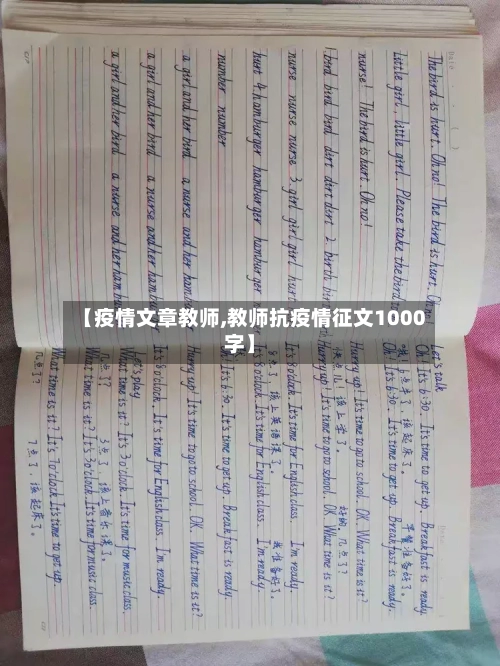 【疫情文章教师,教师抗疫情征文1000
字】
The bird is hurt. Oh no! The bird is hurt. Oh
little girl, little girl. Please take the bird
nurse! The bird is hurt. Oh no!
1. bird bird bird dirt dirt dirt 2. birth birth
nurse nurse nurse 3. girl girl girl hurt
hurt 4. hamburger hamburger hamburger
number number
a girl and her bird a nurse and her ham
a girl and her bird a nurse and her ham
a girl and her bird a nurse and her ham
Let's talk
Ok! It's 6:30. It's time to get up. Breakfast is ready.
OK. It's 6:30. It's time to get up. Breakfast is ready.
Hurry up! It's time to go to school. OK. What time is it?
Hurry up! It's time to go to school. OK. What time is it?
It's 8 o'clock. It's time for English class. I'm ready.
It's 8 o'clock. It's time for English class. I'm ready.
OK. It's 6:30. It's time to get up. Breakfast is ready.
Hurry up! It's time to go to school. OK. What time is it?
It's 8 o'clock. It's time for English class. I'm ready.
Let's play
What time is it? It's 3 o'clock. It's time for music class.
3点了。该上音乐课了。
What time is it? It's 3 o'clock. It's time for music class.
What time is it? It's 7 o'clock. It's time to get up.
几点了? 7点了。该起床了。